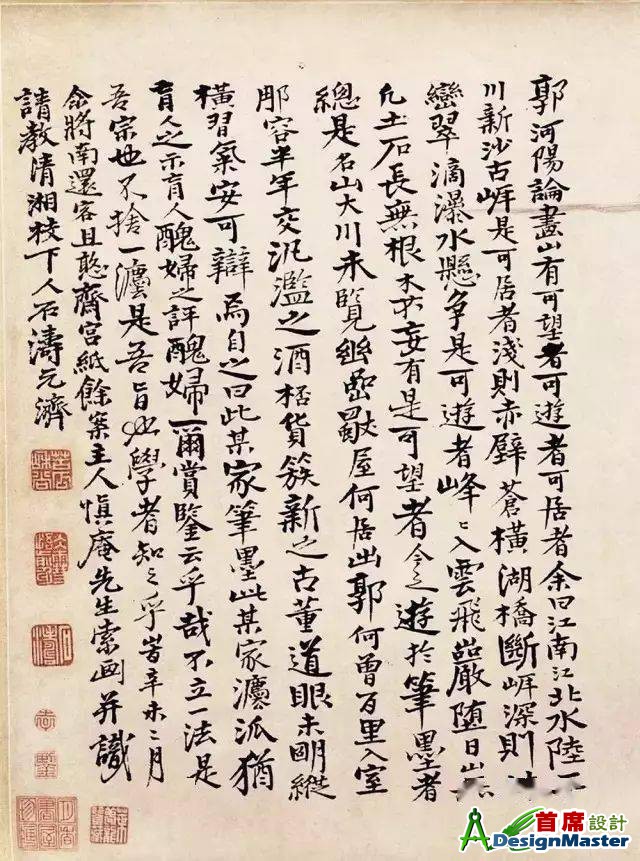 郭河陽論畫山有可望者可遊者可居者余曰江南江北水陸平
川新沙古崖是可居者淺則赤壁蒼橫湖橋斷崖深則林
巒翠滴瀑水懸爭是可遊者峰峰入雲飛巖墮日山無
凡土石長無根木不妄有是可望者今之遊於筆墨者
總是名山大川未覽幽巖獨屋何居出郭何曾百里入室
那容半年交汎濫之酒杯貨簇新之古董道眼未明縱
橫習氣安可辯焉自之曰此某家筆墨此某家法派猶
盲人之示盲人醜婦之評醜婦爾賞鑒云乎哉不立一法是
吾宗也不捨一法是吾旨也學者知之乎旹辛未二月
余將南還客且憨齋宮紙餘案主人慎庵先生索画并識
請教清湘枝下人石濤元濟
首席設計
DesignMaster